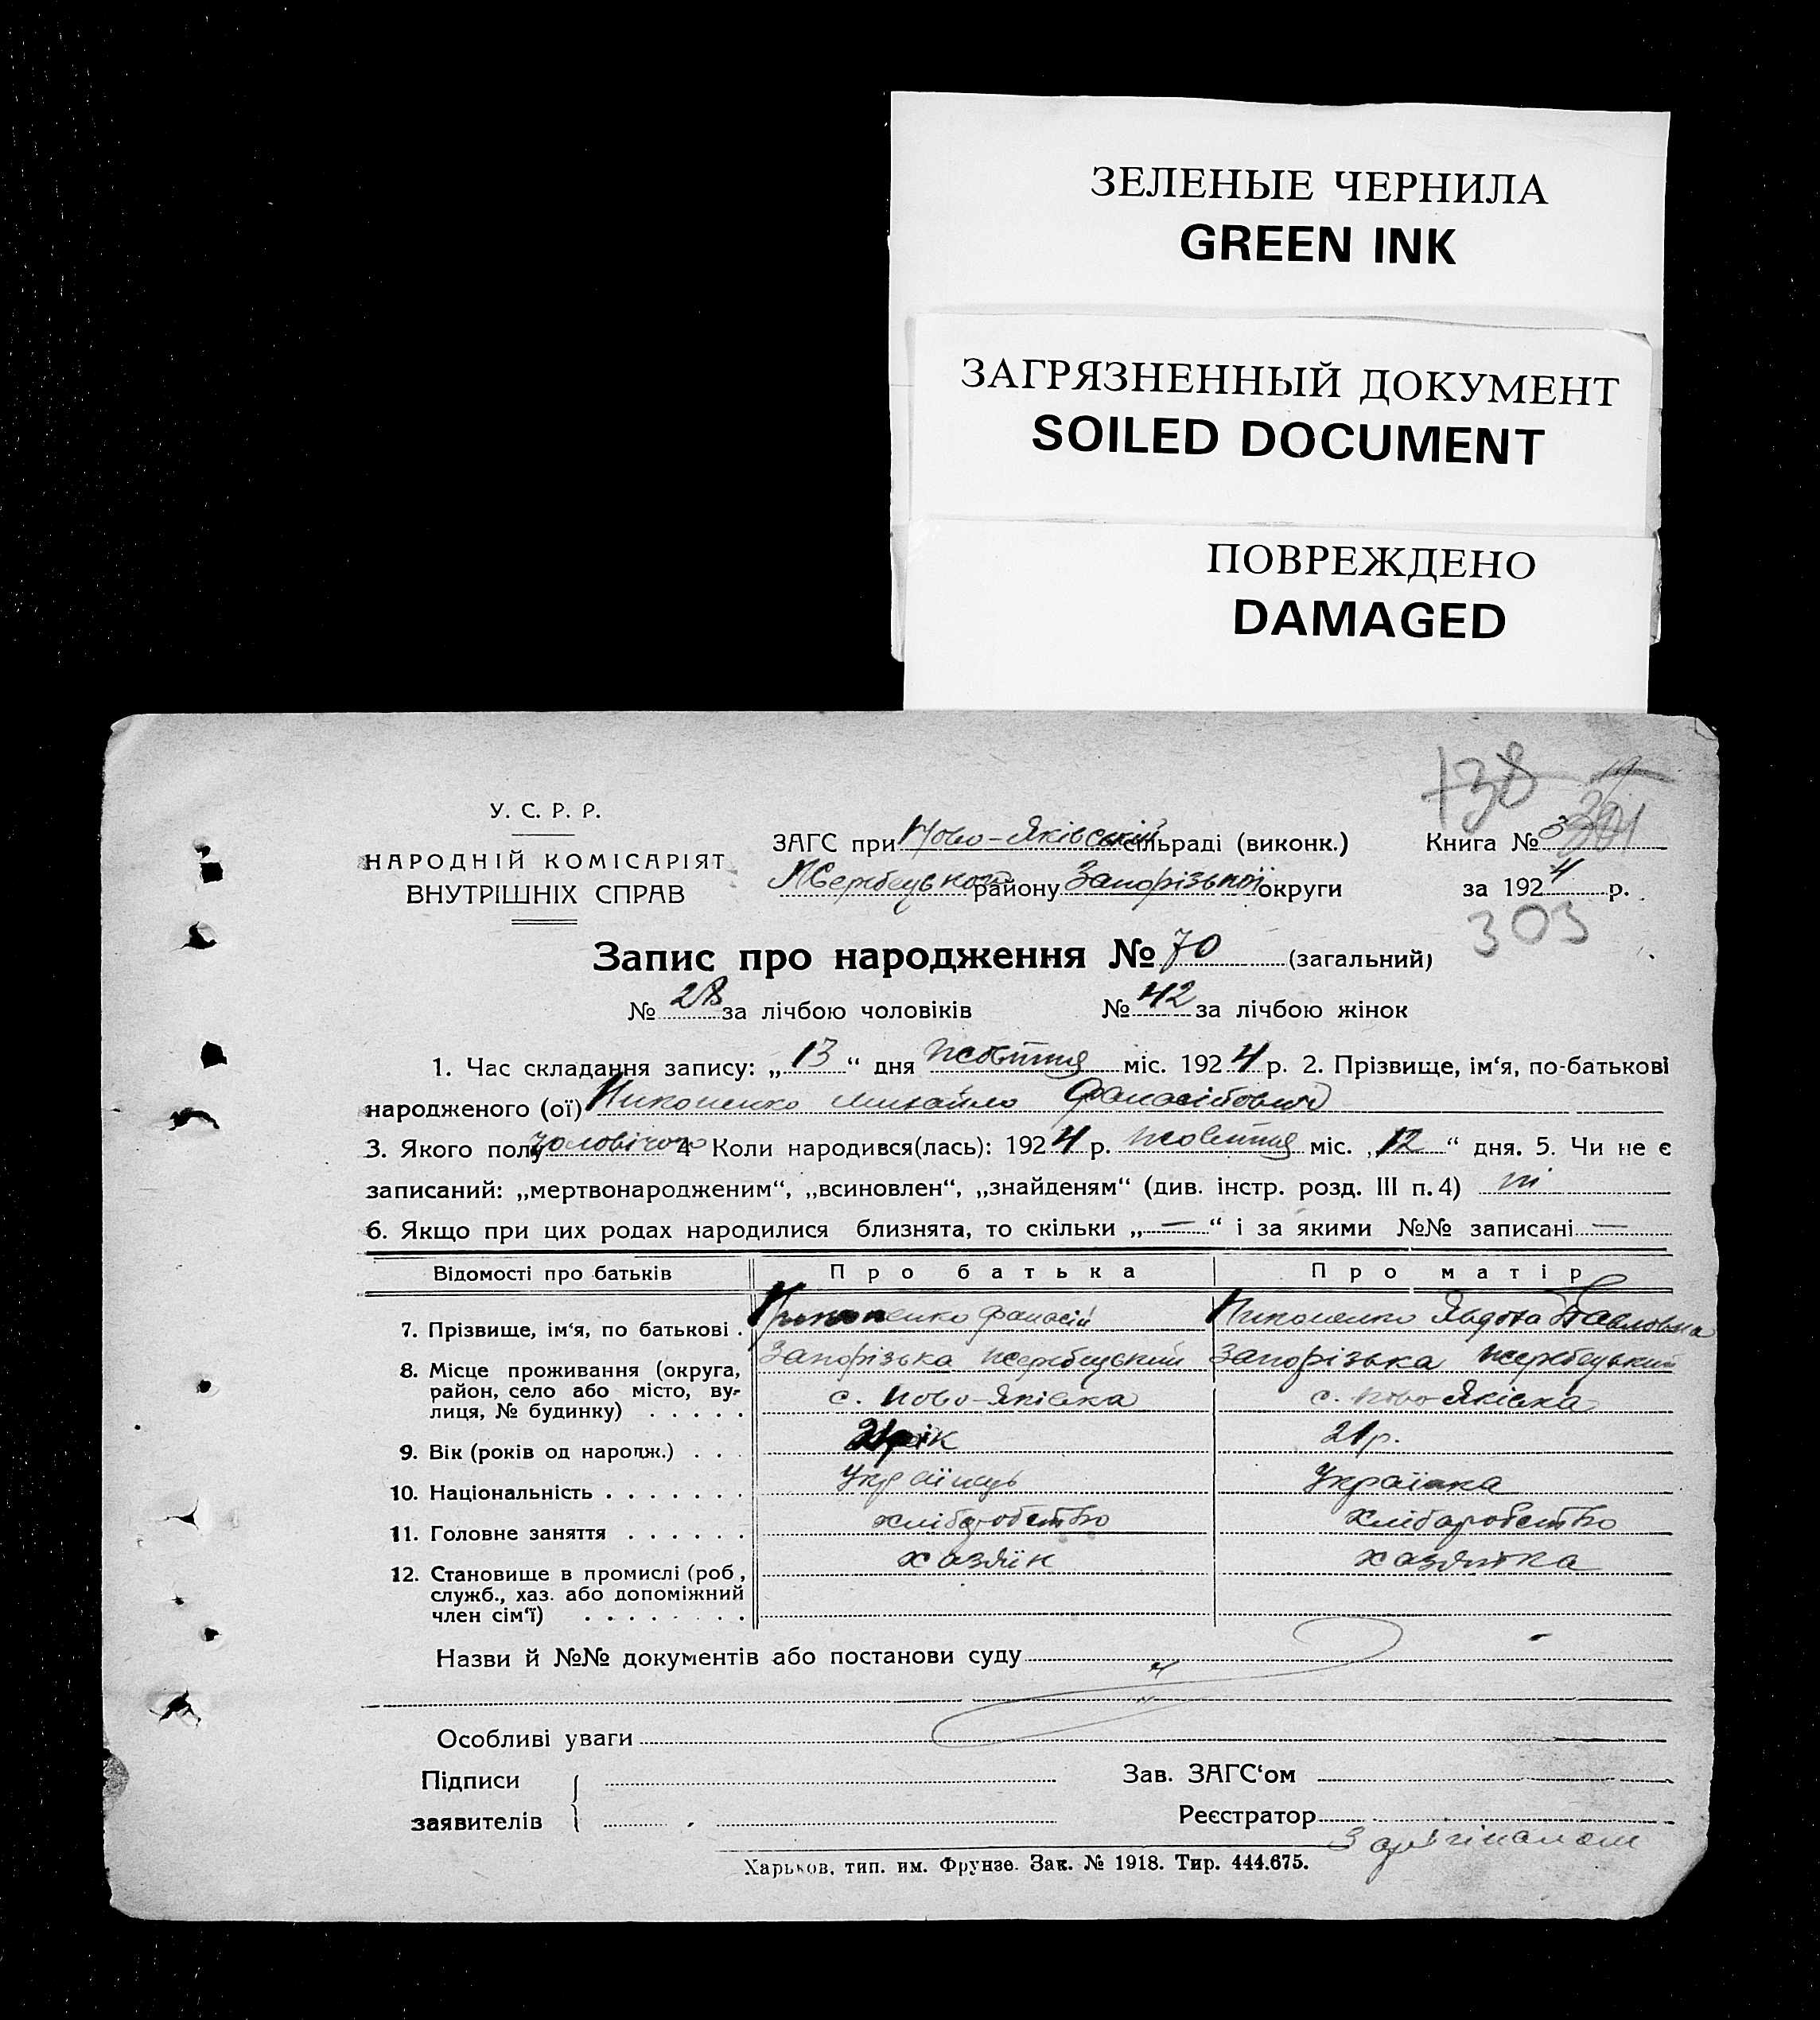 ЗЕЛЕНЫЕ ЧЕРНИЛА
GREEN INK
ЗАГРЯЗНЕННЫЙ ДОКУМЕНТ
SOILED DOCUMENT
ПОВРЕЖДЕНО
DAMAGED
138
У. С. Р. Р.
НАРОДНІЙ КОМІСАРІЯТ
ВНУТРІШНІХ СПРАВ
ЗАГС при Ново-Яківській сільраді (виконк.) Книга № 3
Жеребецького району Запорізької округи за 1924 р.
303
Запис про народження № 70 (загальний)
№ 28 за лічбою чоловіків № 42 за лічбою жінок
1. Час складання запису: „ 13 “ дня жовтня міс. 1924 р. 2. Прізвище, ім‘я, по-батькові
народженого (ої) Никоненко Михайло Фанасійович
3. Якого полу чоловічого 4 Коли народився(лась): 1924 р. жовтня міс. „ 12 “ дня. 5. Чи не є
записаний: „мертвонародженим“, „всиновлен“, „знайденям“ (див. інстр. розд. III п. 4) ні
6. Якщо при цих родах народилися близнята, то скільки „ — “ і за якими №№ записані —
Відомості про батьків Про батька Про матір
7. Прізвище, ім‘я, по батькові . Никоненко Фанасій Никоненко Явдоха Павловна
8. Місце проживання (округа, район, село або місто, вулиця, № будинку) . . . . . Запорізька жеребецький Запорізька жеребецький
с. Ново-Яківка с. Ново-Яківка
9. Вік (років од народж.) . . . 21 рік 21 р.
10. Національність . . . . . . . Українець Українка
11. Головне заняття . . . . . . хліборобство хліборобство
12. Становище в промислі (роб, служб., хаз. або допоміжний член сім‘ї) . . . . . . . . хазяїн хазяйка
Назви й №№ документів або постанови суду
Особливі уваги
Підписи Зав. ЗАГС‘ом
заявителів Реєстратор
З оригіналом
Харьков, тип. им. Фрунзе. Зак. № 1918. Тир. 444.675.